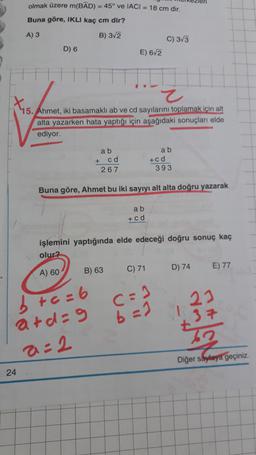 olmak üzere m(BAD) = 45° ve IACI = 18 cm dir.
Buna göre, IKLI kaç cm dir?
A) 3 B) 3√2 C) 3√3
D) 6 E) 6√2
15. Ahmet, iki basamaklı ab ve cd sayılarını toplamak için alt
alta yazarken hata yaptığı için aşağıdaki sonuçları elde
ediyor.
a b a b
+ c d +c d
2 6 7 3 9 3
Buna göre, Ahmet bu iki sayıyı alt alta doğru yazarak
a b
+ c d
işlemini yaptığında elde edeceği doğru sonuç kaç
olur?
A) 60 B) 63 C) 71 D) 74 E) 77
b + c = 6 c = 3 23
a + d = 9 b = 3 + 37
a = 2
Diğer sayfaya geçiniz.
24